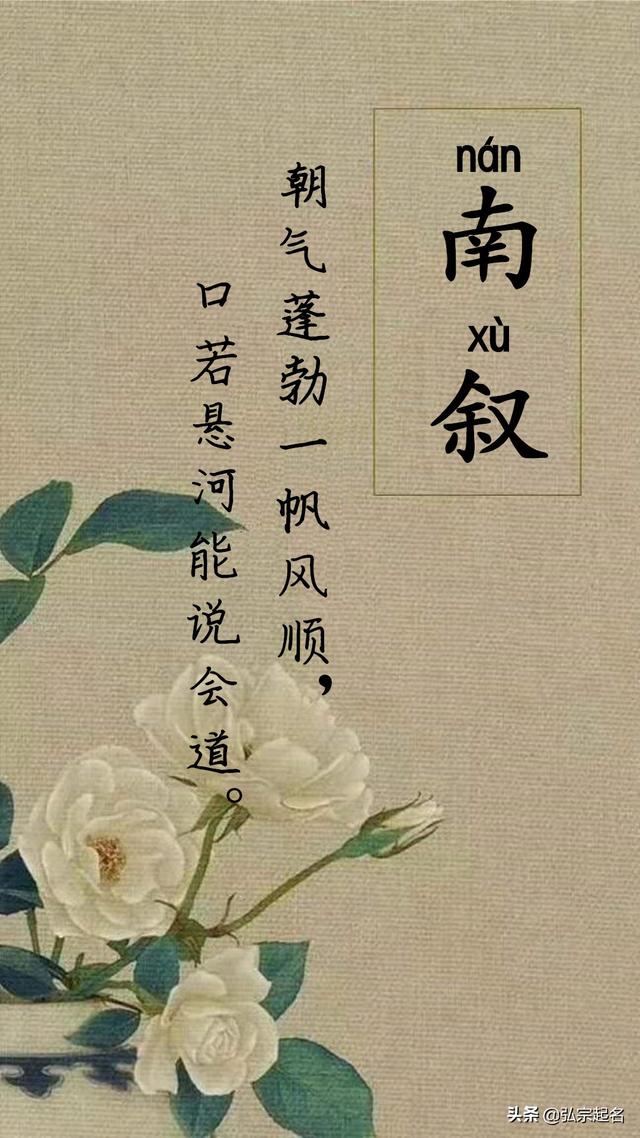 nán
南
xù
叙
朝气蓬勃一帆风顺，
口若悬河能说会道。
头条 @弘宗起名